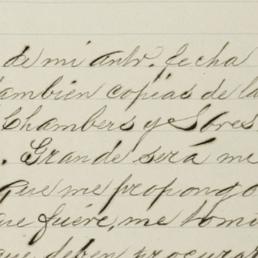 de mi antr. fecha
tambien copias de la
Chambers y Sres
. Grande será me
que me propongo
que fuére, me tomé
que deben procurar